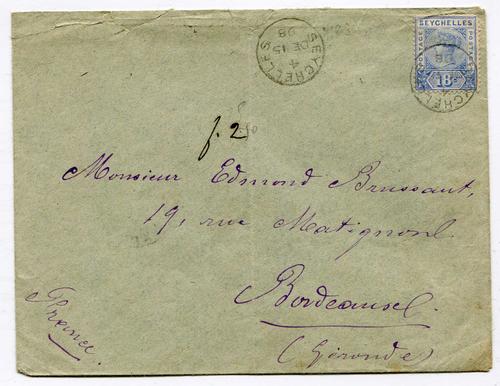 SEYCHELLES
POSTAGE
POSTAGE
18c
SEYCHELLES
4
DE 15
98
f. 2
Monsieur Edmond Brussaut,
19, rue Matignon
Bordeaux
(Gironde)
France